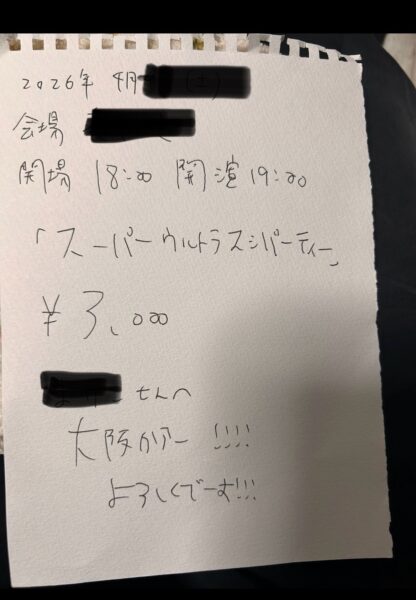 2026年 4月 (土)
会場
開場 18:00 開演 19:00
「スーパーウルトラスシパーティー」
¥3,000
さんへ
大阪ツアー !!!!
よろしくでーす!!!